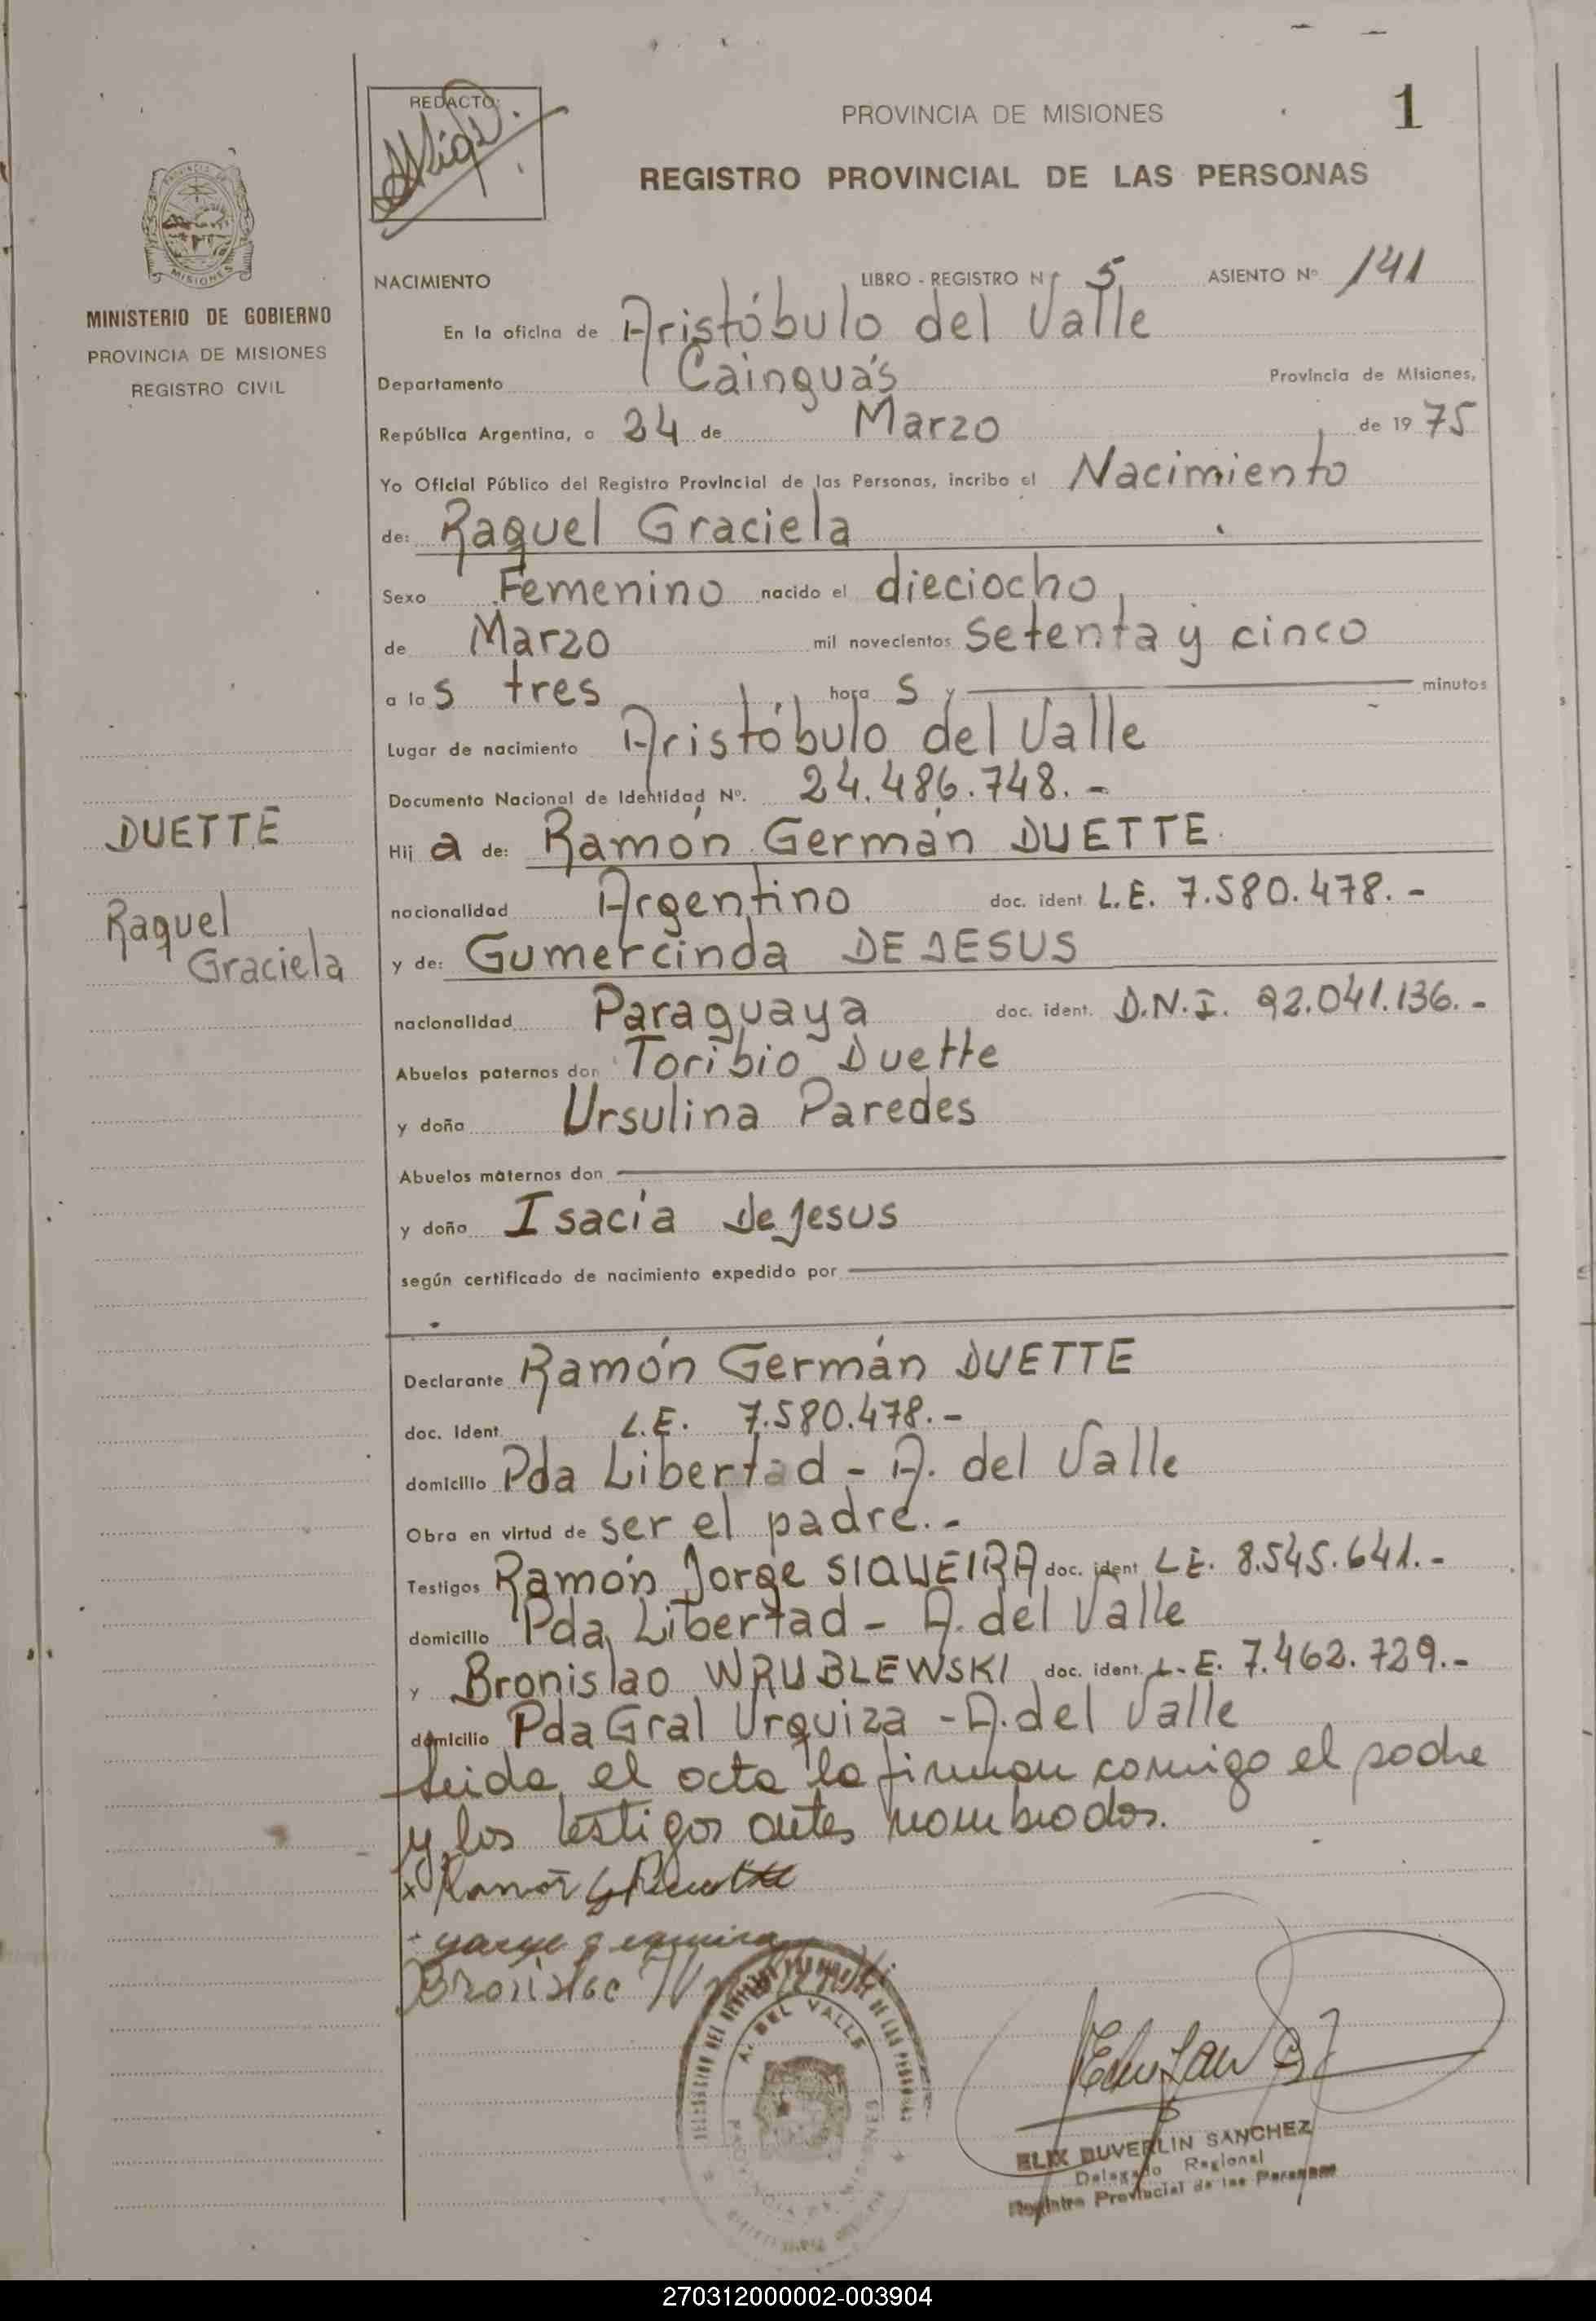 REDACTO:
PROVINCIA DE MISIONES
1
REGISTRO PROVINCIAL DE LAS PERSONAS
MISIONES
MINISTERIO DE GOBIERNO
PROVINCIA DE MISIONES
REGISTRO CIVIL
NACIMIENTO LIBRO - REGISTRO Nº 5 ASIENTO Nº 141
En la oficina de Aristóbulo del Valle
Departamento Cainguás Provincia de Misiones,
República Argentina, a 24 de Marzo de 1975
Yo Oficial Público del Registro Provincial de las Personas, incribo el Nacimiento
de: Raquel Graciela
Sexo Femenino nacido el dieciocho
de Marzo mil novecientos setenta y cinco
a las tres horas y minutos
Lugar de nacimiento Aristóbulo del Valle
Documento Nacional de Identidad Nº. 24.486.748.-
DUETTE
Hija de: Ramón Germán DUETTE.
nacionalidad Argentino doc. ident L.E. 7.580.478.-
Raquel
Graciela
y de: Gumercinda DE JESUS
nacionalidad Paraguaya doc. ident. D.N.I. 92.041.136.-
Abuelos paternos don Toribio Duette
y doña Ursulina Paredes
Abuelos maternos don
y doña Isacia De Jesus
según certificado de nacimiento expedido por
Declarante Ramón Germán DUETTE
doc. Ident. L.E. 7.580.478.-
domicilio Pda Libertad - A. del Valle
Obra en virtud de ser el padre.-
Testigos Ramón Jorge SIQUEIRA doc. ident L.E. 8.545.641.-
domicilio Pda Libertad - A. del Valle
y Bronislao WRUBLEWSKI doc. ident. L.E. 7.462.729.-
domicilio Pda Gral Urquiza - A. del Valle
Leida el acta la firman comigo el padre
y los testigos antes nombrados.
x Ramón G Duette
Bronislao
A. DEL VALLE
ELIX DUVERLIN SANCHEZ
Delegado Regional
Registro Provincial de las Personas
270312000002-003904